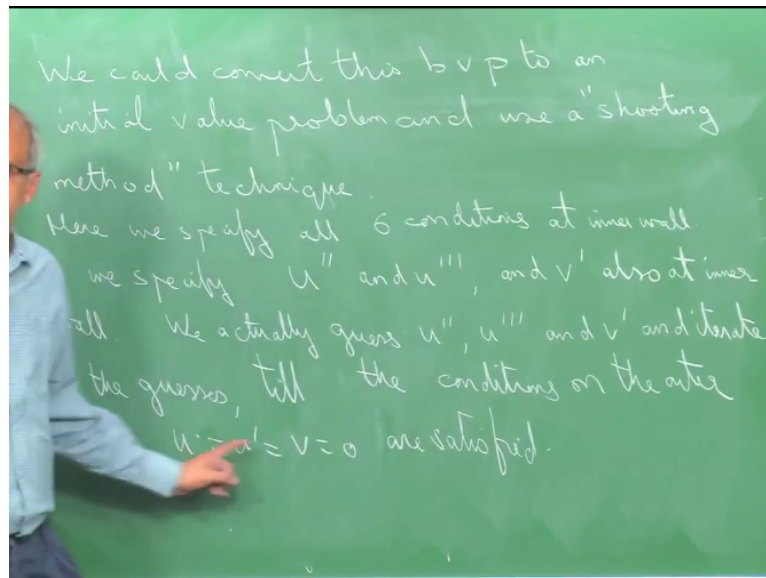 We could convert this bvp to an
initial value problem and use a "shooting
method" technique.
Here we specify all 6 conditions at inner wall.
we specify u'' and u''', and v' also at inner
wall. We actually guess u'', u''' and v' and iterate
the guesses, till the conditions on the outer
u = u' = v = 0 are satisfied.